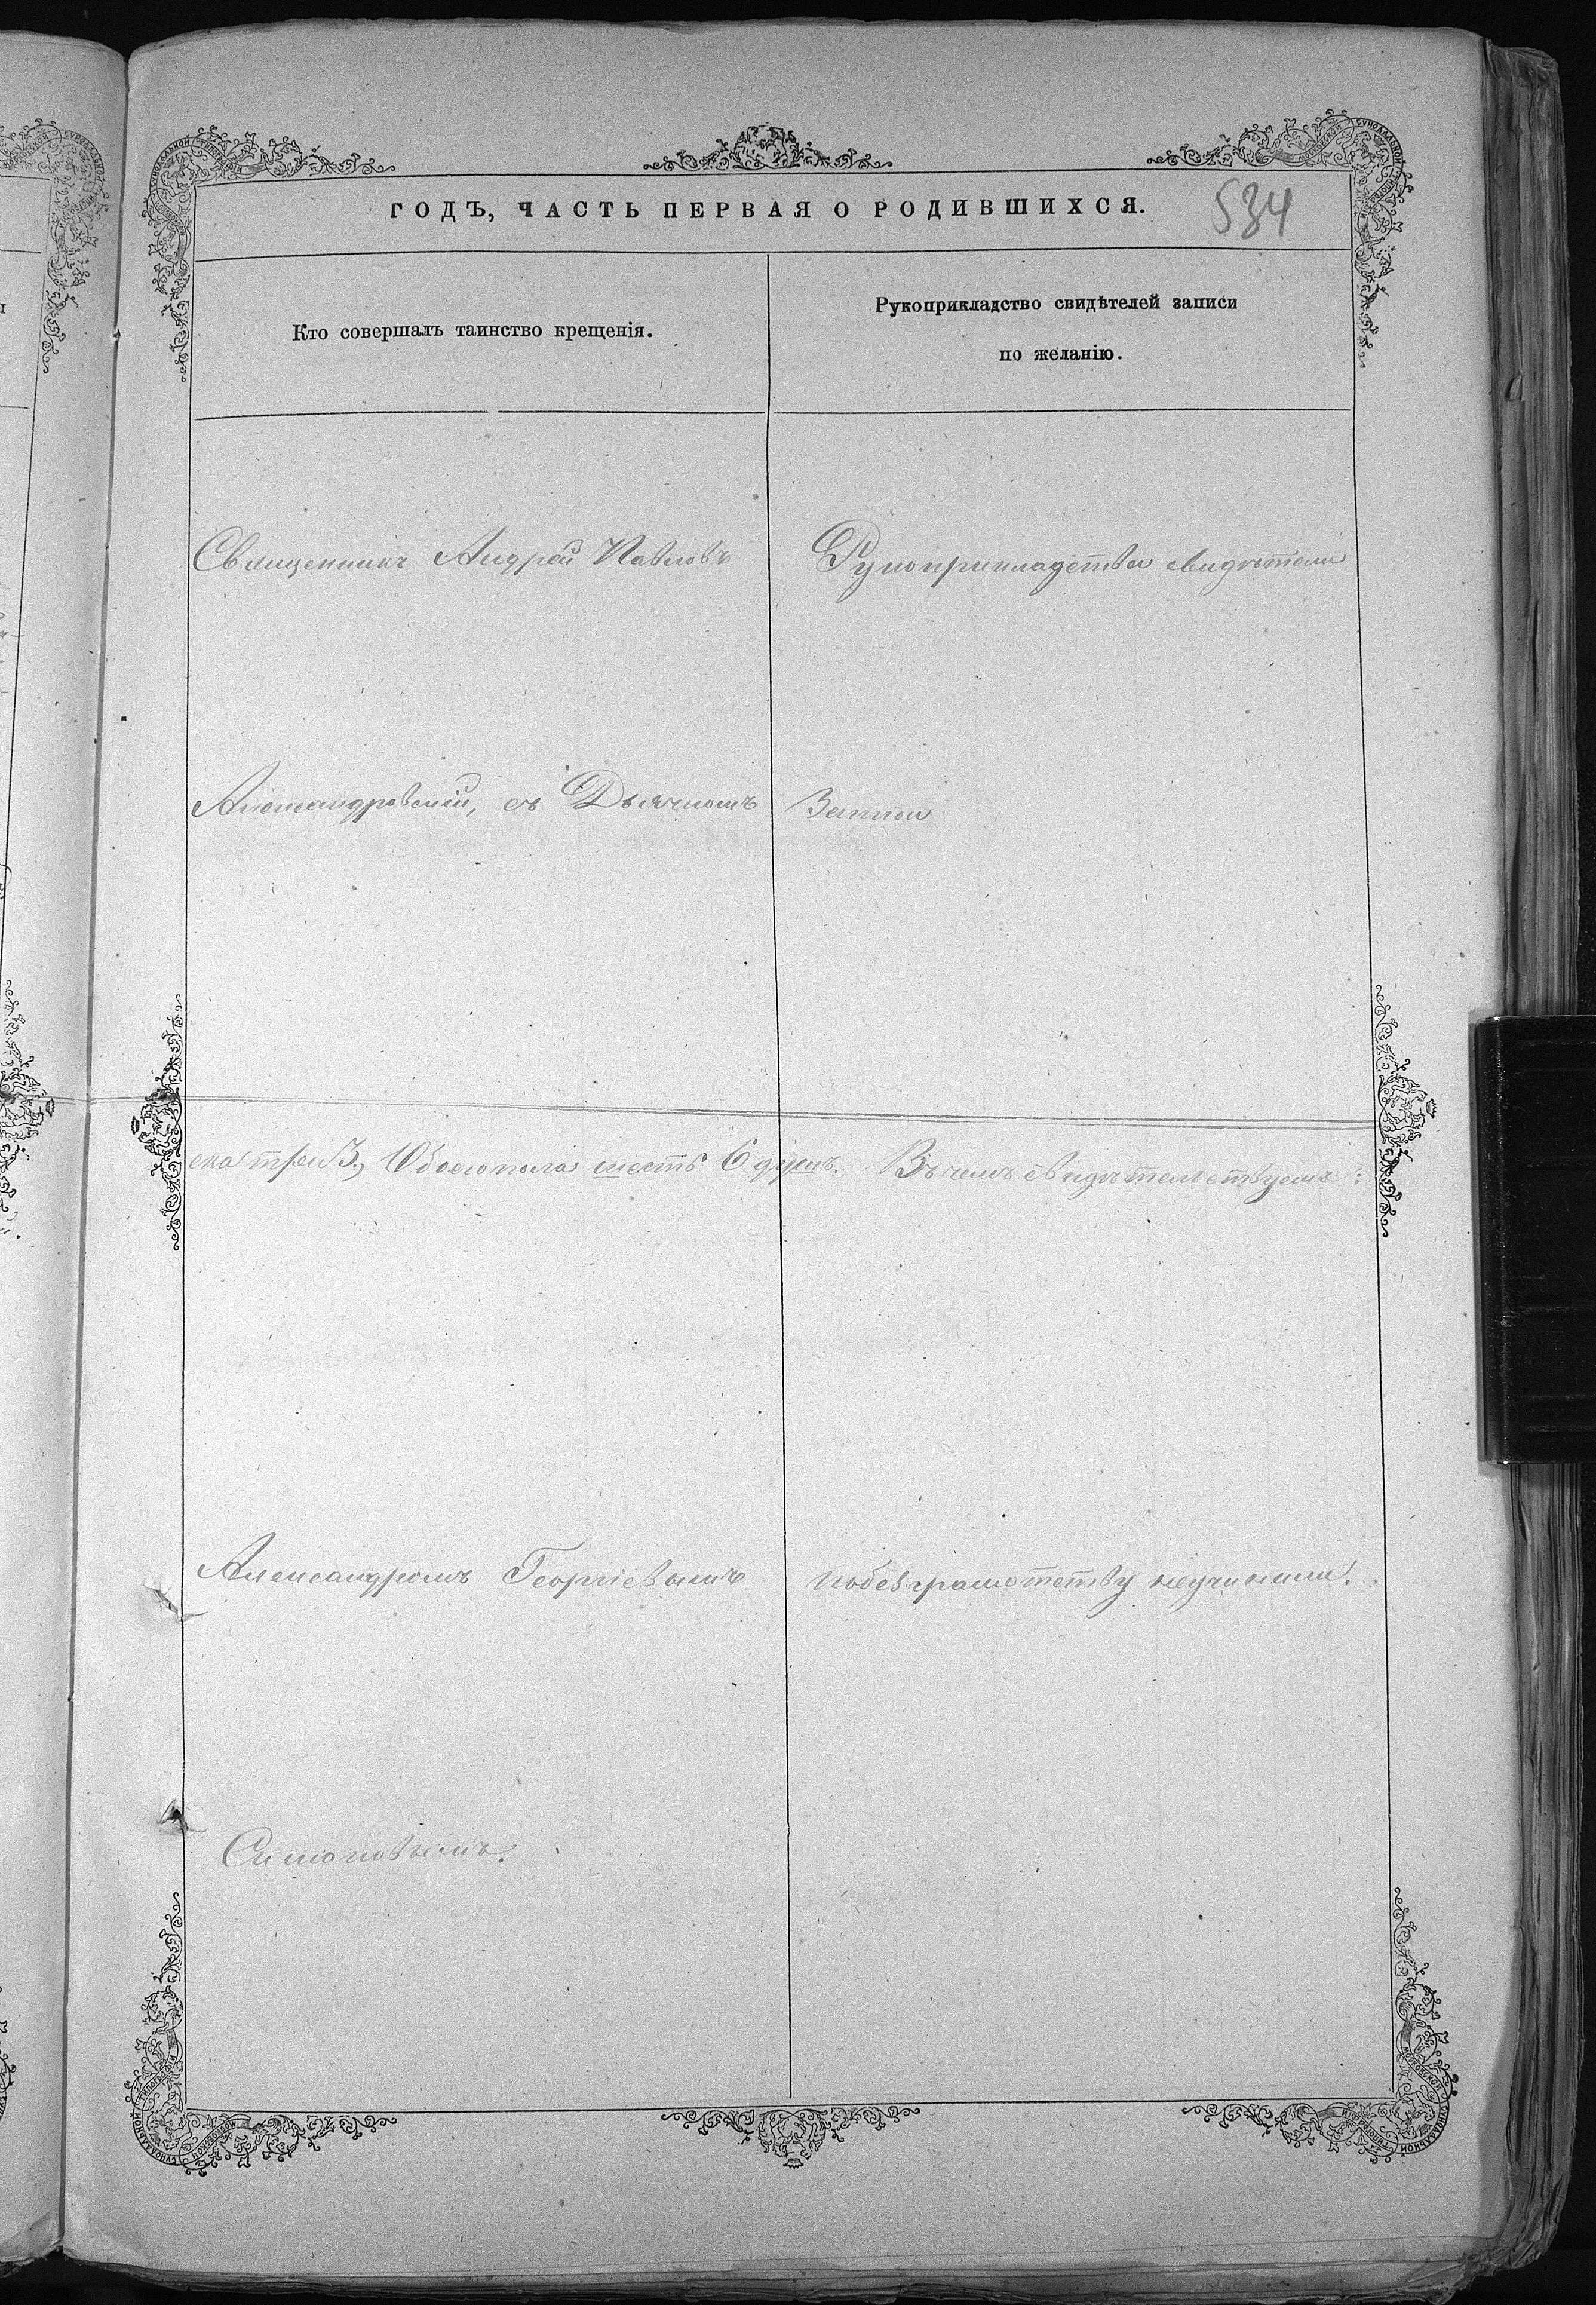 ГОДЪ, ЧАСТЬ ПЕРВАЯ О РОДИВШИХСЯ.
534
Кто совершалъ таинство крещенія.
Рукоприкладство свидѣтелей записи
по желанію.
Священникъ Андрей Павловъ
Рукоприкладства свидѣтели
Александровскій, съ Дьячкомъ
Записи
ска три 3., Обоего пола шесть 6 душъ. Въ чемъ свидѣтельствуемъ:
Александромъ Георгіевымъ
по безграмотству неучинили.
Симоновымъ.